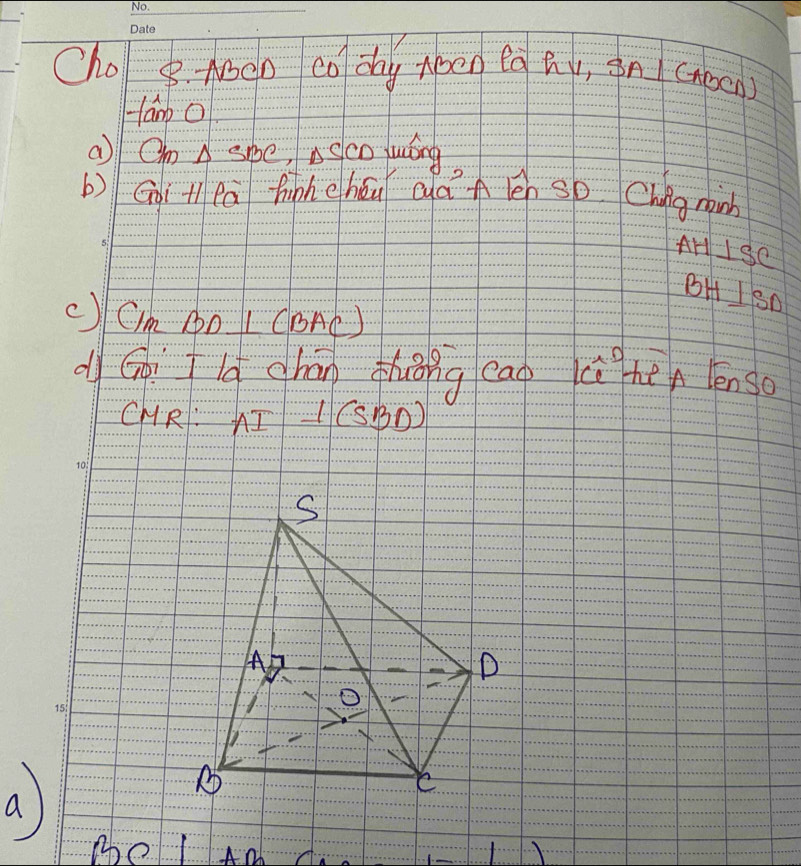 No.
Date
Cho S.ABCD có đáy ABCD là hv, SA ⊥ (ABCD)
tâm O
a) Cm Δ SBC, Δ SCD vuông
b) Gọi H là hình chiếu của A lên SD. Chứng minh
5
AH ⊥ SC
BH ⊥ SD
c) Cm BD ⊥ (BAC)
d) Gọi I là chân đường cao kẻ từ A lên SO
CMR: AI ⊥ (SBD)
10
S
A
D
O
15
B
C
a)
BC ⊥ AB